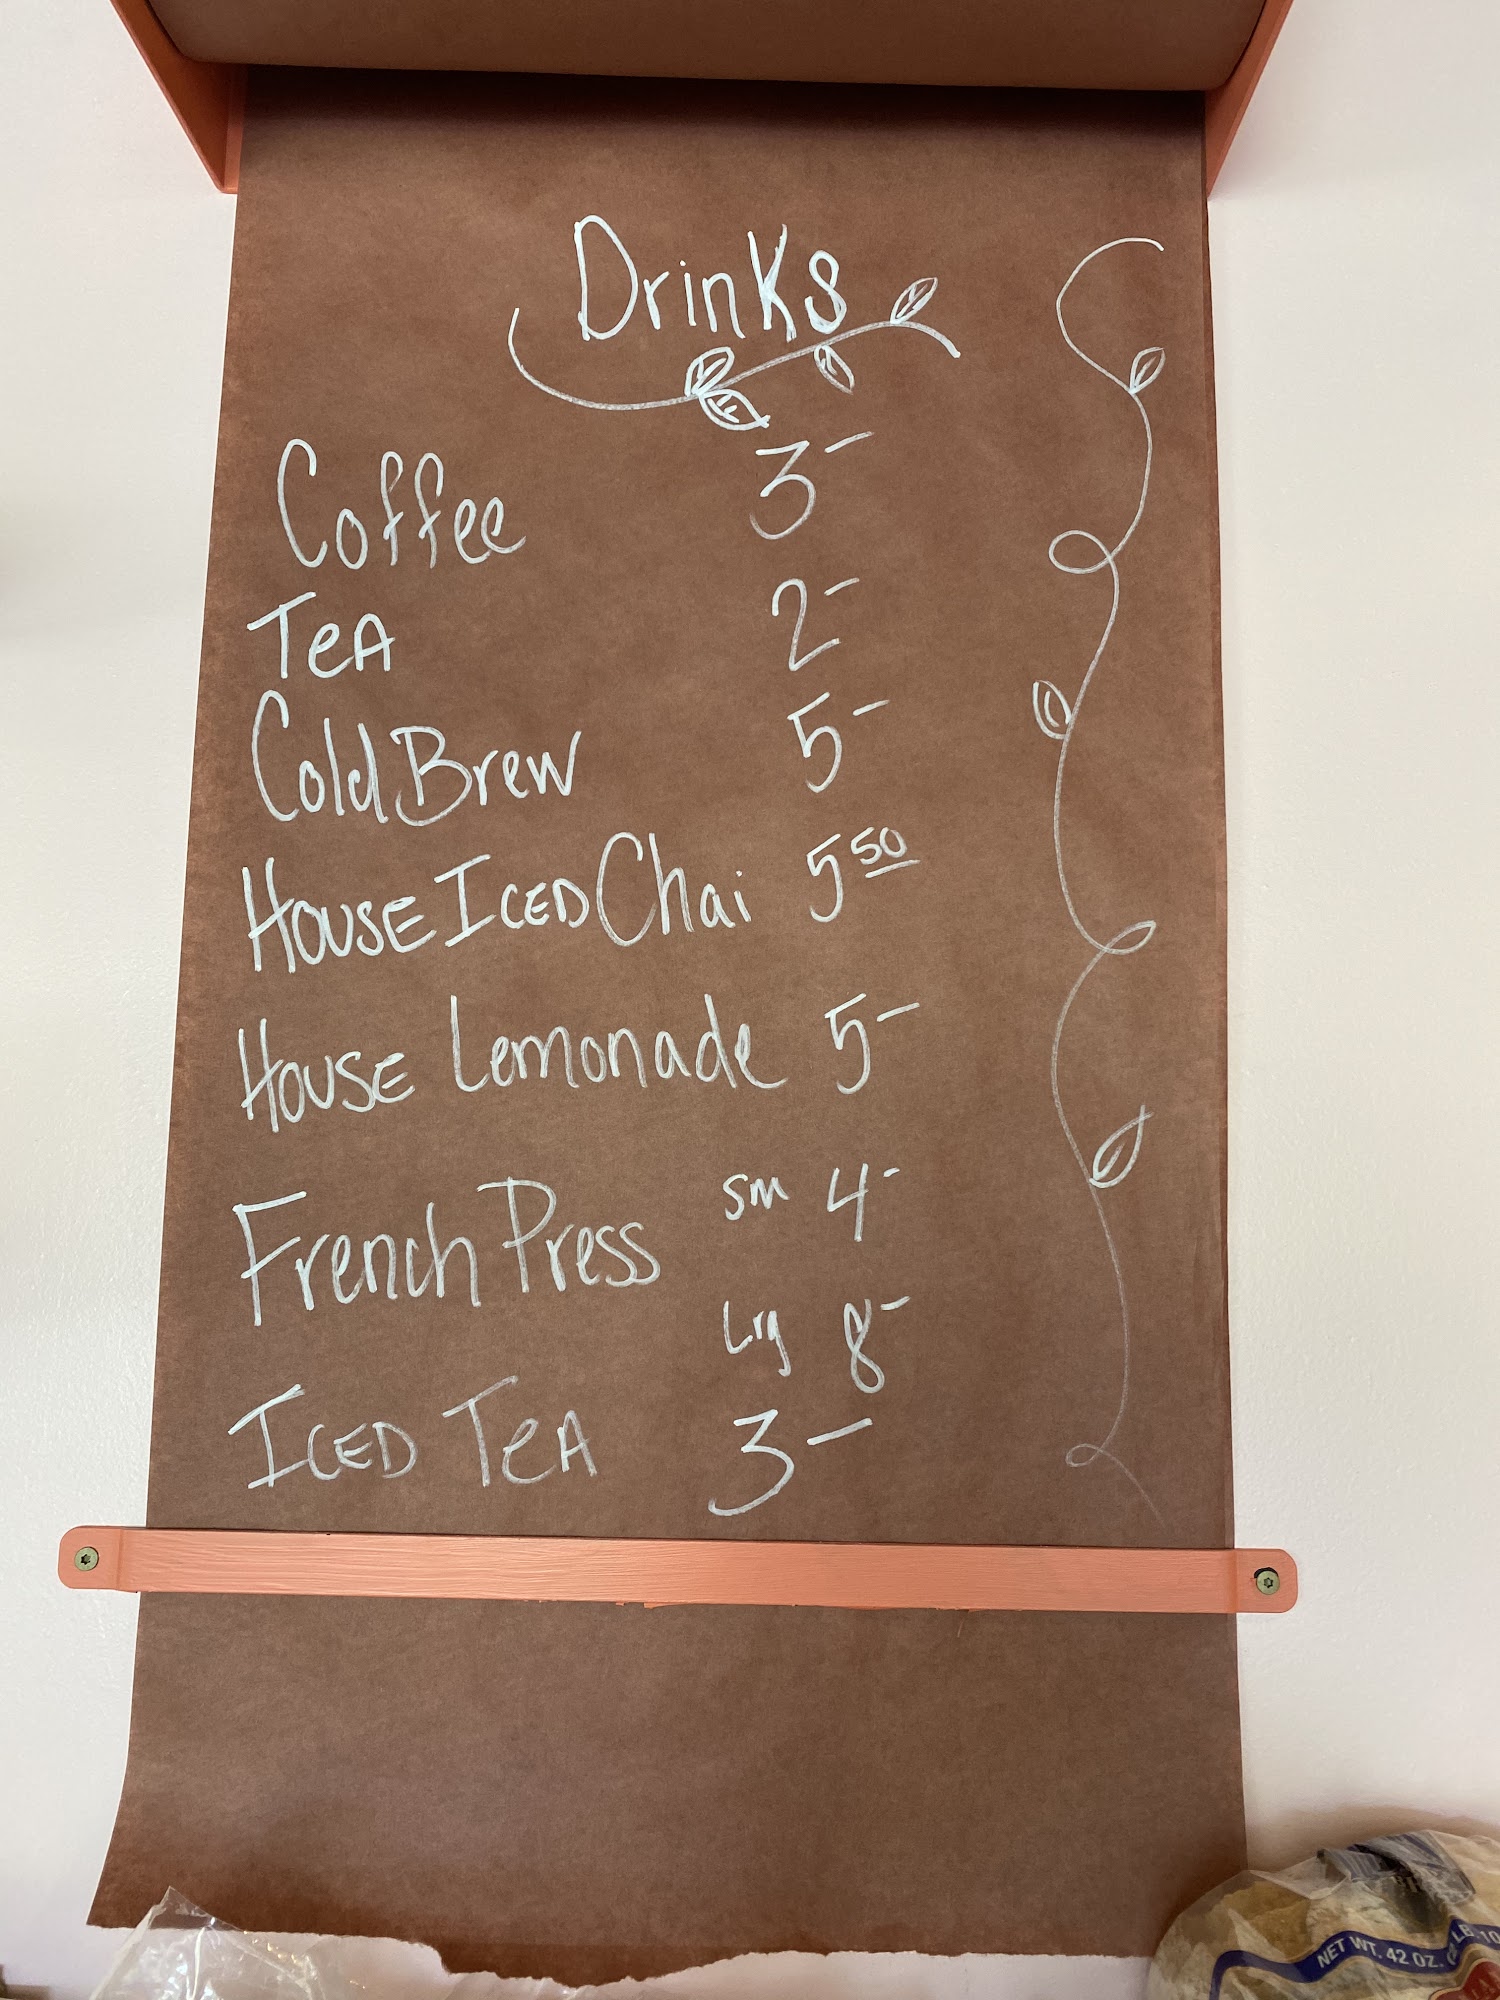 Drinks
Coffee 3-
TeA 2-
Cold Brew 5-
HOUSE ICED Chai 5 50
HOUSE Lemonade 5-
French Press sm 4-
Lrg 8-
ICED TeA 3-
NET WT. 42 OZ.